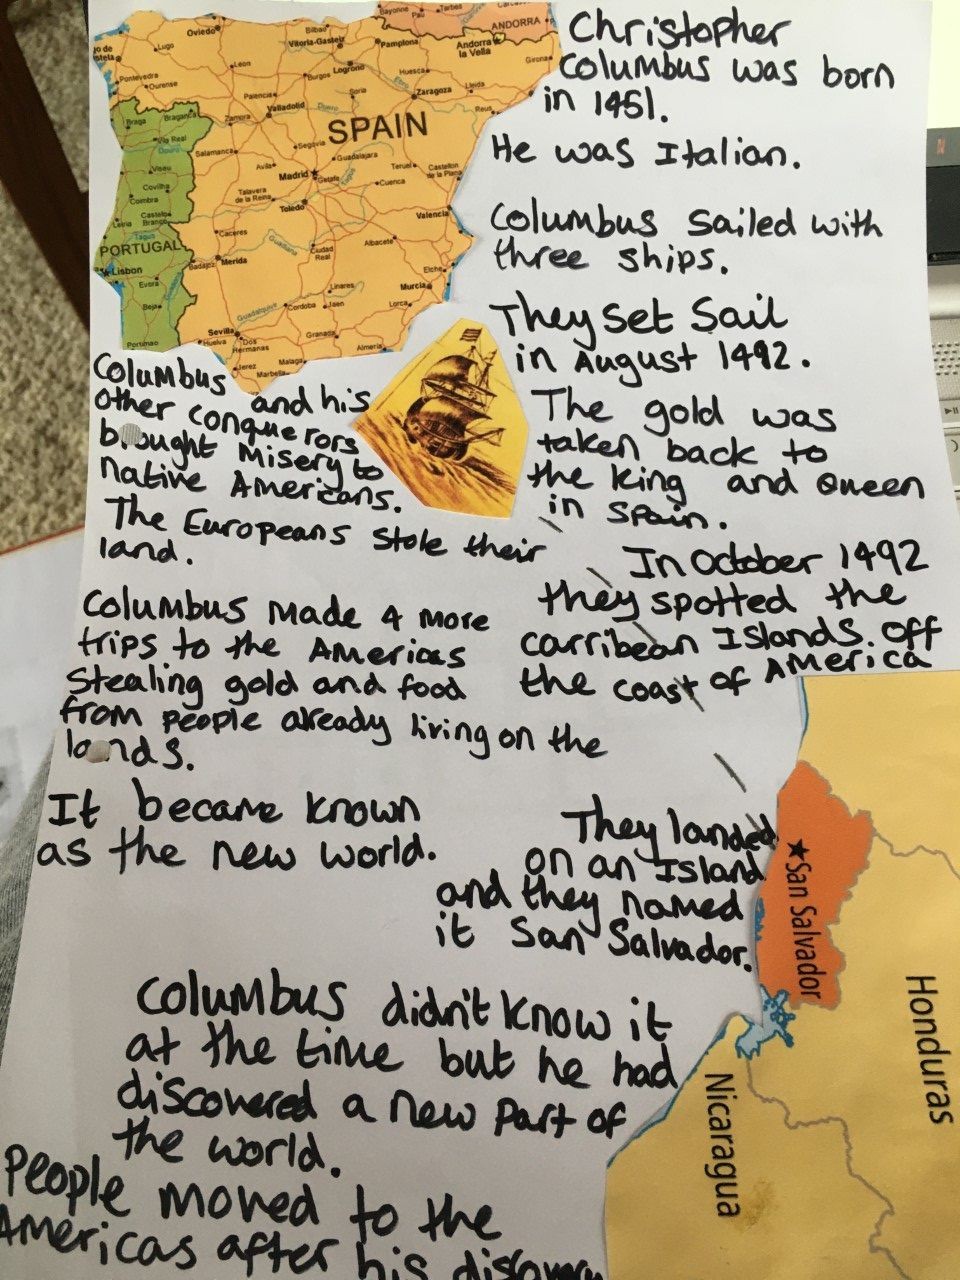 Christopher
Columbus was born
in 1451.
He was Italian.
Columbus Sailed with
three ships.
They set Sail
in August 1492.
The gold was
taken back to
the king and Queen
in Spain.
In October 1492
they spotted the
carribean Islands. Off
the coast of America
They landed
on an Island
and they named
it San Salvador.
Columbus and his
other conquerors
brought Misery to
native Americans.
The Europeans Stole their
land.
Columbus Made 4 more
trips to the Americas
Stealing gold and food
from people already living on the
lands.
It became known
as the new world.
Columbus didn't know it
at the time but he had
discovered a new part of
the world.
People moved to the
Americas after his discovery
SPAIN
PORTUGAL
ANDORRA
Andorra
la Vella
Bayonne
Pau
Tarbes
Oviedo
Bilbao
Vitoria-Gasteiz
Pamplona
Lugo
Leon
Burgos
Logrono
Huesca
Girona
Pontevedra
Ourense
Palencia
Valladolid
Soria
Zaragoza
Lleida
Reus
Braga
Braganca
Zamora
Duero
Vila Real
Douro
Salamanca
Segovia
Guadalajara
Avila
Teruel
Castellon
de la Plana
Viseu
Madrid
Getafe
Tagus
Cuenca
Covilha
Coimbra
Talavera
de la Reina
Toledo
Leiria
Castelo
Branco
Valencia
Tagus
Caceres
Guadiana
Ciudad
Real
Albacete
Lisbon
Badajoz
Merida
Evora
Elche
Linares
Murcia
Beja
Guadalquivir
Cordoba
Jaen
Lorca
Sevilla
Granada
Huelva
Dos
Hermanas
Almeria
Portimao
Malaga
Jerez
Marbella
San Salvador
Honduras
Nicaragua